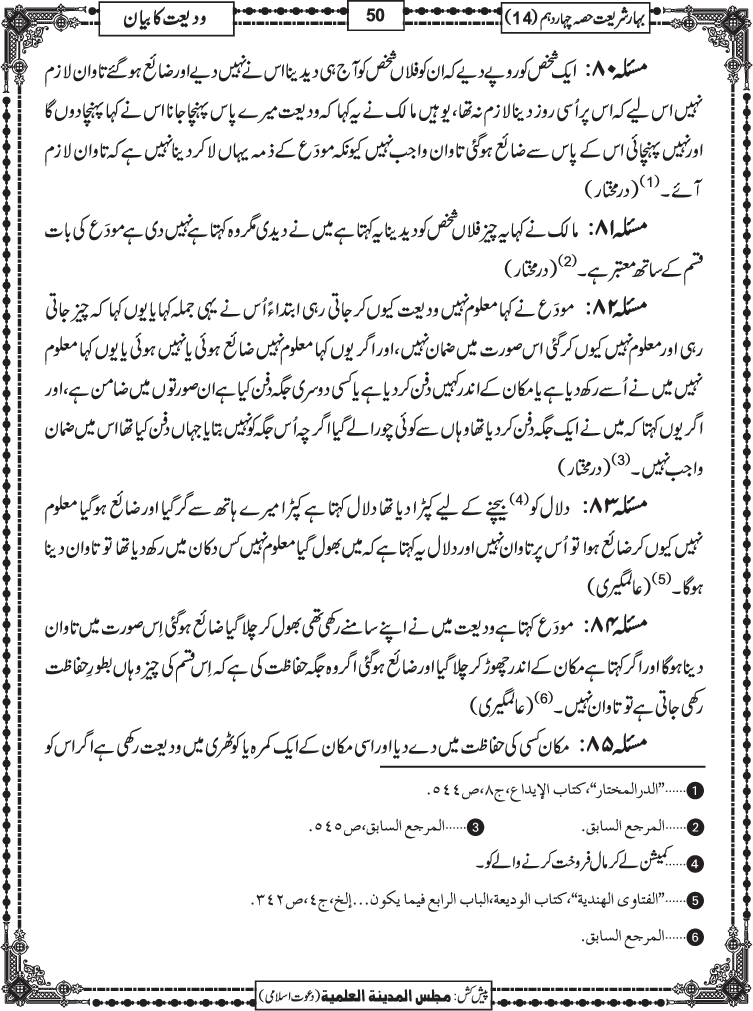 بہار شریعت حصہ چہاردہم (14)
50
ودیعت کا بیان
مسئلہ ۸۰: ایک شخص کو روپے دیے کہ ان کو فلاں شخص کو آج ہی دیدینا اس نے نہیں دیے اور ضائع ہوگئے تاوان لازم
نہیں اس لیے کہ اس پر اُسی روز دینا لازم نہ تھا، یوہیں مالک نے یہ کہا کہ ودیعت میرے پاس پہنچا جانا اس نے کہا پہنچا دوں گا
اور نہیں پہنچائی اس کے پاس سے ضائع ہوگئی تاوان واجب نہیں کیونکہ مودَع کے ذمہ یہاں لاکر دینا نہیں ہے کہ تاوان لازم
آئے۔(1) (درمختار)
مسئلہ ۸۱: مالک نے کہا یہ چیز فلاں شخص کو دیدینا یہ کہتا ہے میں نے دیدی مگر وہ کہتا ہے نہیں دی ہے مودَع کی بات
قسم کے ساتھ معتبر ہے۔(2) (درمختار)
مسئلہ ۸۲: مودَع نے کہا معلوم نہیں ودیعت کیوں کر جاتی رہی ابتداءً اُس نے یہی جملہ کہا یا یوں کہا کہ چیز جاتی
رہی اور معلوم نہیں کیوں کر گئی اس صورت میں ضمان نہیں، اور اگر یوں کہا معلوم نہیں ضائع ہوئی یا نہیں ہوئی یا یوں کہا معلوم
نہیں میں نے اُسے رکھ دیا ہے یا مکان کے اندر کہیں دفن کردیا ہے یا کسی دوسری جگہ دفن کیا ہے ان صورتوں میں ضامن ہے، اور
اگر یوں کہتا کہ میں نے ایک جگہ دفن کردیا تھا وہاں سے کوئی چورا لے گیا اگرچہ اُس جگہ کو نہیں بتایا جہاں دفن کیا تھا اس میں ضمان
واجب نہیں۔(3) (درمختار)
مسئلہ ۸۳: دلال کو(4) بیچنے کے لیے کپڑا دیا تھا دلال کہتا ہے کپڑا میرے ہاتھ سے گر گیا اور ضائع ہوگیا معلوم
نہیں کیوں کر ضائع ہوا تو اُس پر تاوان نہیں اور دلال یہ کہتا ہے کہ میں بھول گیا معلوم نہیں کس دکان میں رکھ دیا تھا تو تاوان دینا
ہوگا۔(5) (عالمگیری)
مسئلہ ۸۴: مودَع کہتا ہے ودیعت میں نے اپنے سامنے رکھی تھی بھول کر چلا گیا ضائع ہوگئی اِس صورت میں تاوان
دینا ہوگا اور اگر کہتا ہے مکان کے اندر چھوڑ کر چلا گیا اور ضائع ہوگئی اگر وہ جگہ حفاظت کی ہے کہ اِس قسم کی چیز وہاں بطورِ حفاظت
رکھی جاتی ہے تو تاوان نہیں۔(6) (عالمگیری)
مسئلہ ۸۵: مکان کسی کی حفاظت میں دے دیا اور اسی مکان کے ایک کمرہ یا کوٹھری میں ودیعت رکھی ہے اگر اس کو
1......"الدرالمختار"، کتاب الإیداع، ج۸، ص٥٤٤.
2......المرجع السابق. 3......المرجع السابق، ص٥٤٥.
4......کمیشن لے کر مال فروخت کرنے والے کو۔
5......"الفتاوی الھندیة"، کتاب الودیعة، الباب الرابع فیما یکون...إلخ، ج٤، ص٣٤٢.
6......المرجع السابق.
پیش کش: مجلس المدینة العلمیة (دعوت اسلامی)